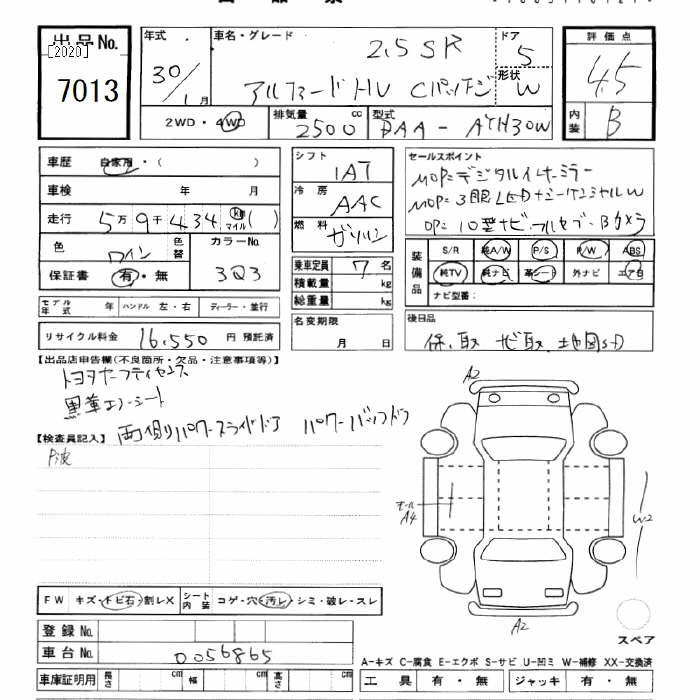 出品No.
[2020]
7013
年式 . 車名・グレード 2.5 SR ドア 5
30/1月 アルファードHV Cパッケージ 形状 W
2WD・4WD 排気量 2500 cc 型式 DAA-AYH30W
評価点
4.5
内装 B
車歴 自家用・( )
車検 年 月
走行 5万9千434 km マイル ( )
色 ワイン 色替 カラーNo. 3Q3
保証書 有・無
モデル年式 年 ハンドル 左・右 ディーラー・並行
リサイクル料金 16,550 円 預託済
シフト IAT
冷房 AAC
燃料 ガソリン
乗車定員 7 名
積載量 kg
総重量 kg
名変期限
月 日
セールスポイント
MOP=デジタルインナーミラー
MOP=3眼LED+シーケンシャルW
OP=10型ナビ・フルセグ・Bカメラ
装備品
S/R 純A/W P/S P/W ABS
純TV 純ナビ 革シート 外ナビ エアB
ナビ型番:
後日品
保、取 ナビ取 地図SD
【出品店申告欄(不良箇所・欠品・注意事項等)】
トヨタセーフティセンス
黒革エアーシート
両側パワースライドドア パワーバックドア
【検査員記入】
A2
モール
A4
W2
A2
FW キズ・トビ石・割レX シート内装 コゲ・穴・汚レ・シミ・破レ・スレ
スペア
登録No.
車台No. 0056865
車庫証明用 長さ cm 幅 cm 高さ cm
A-キズ C-腐食 E-エクボ S-サビ U-凹ミ W-補修 XX-交換済
工具 有・無 ジャッキ 有・無